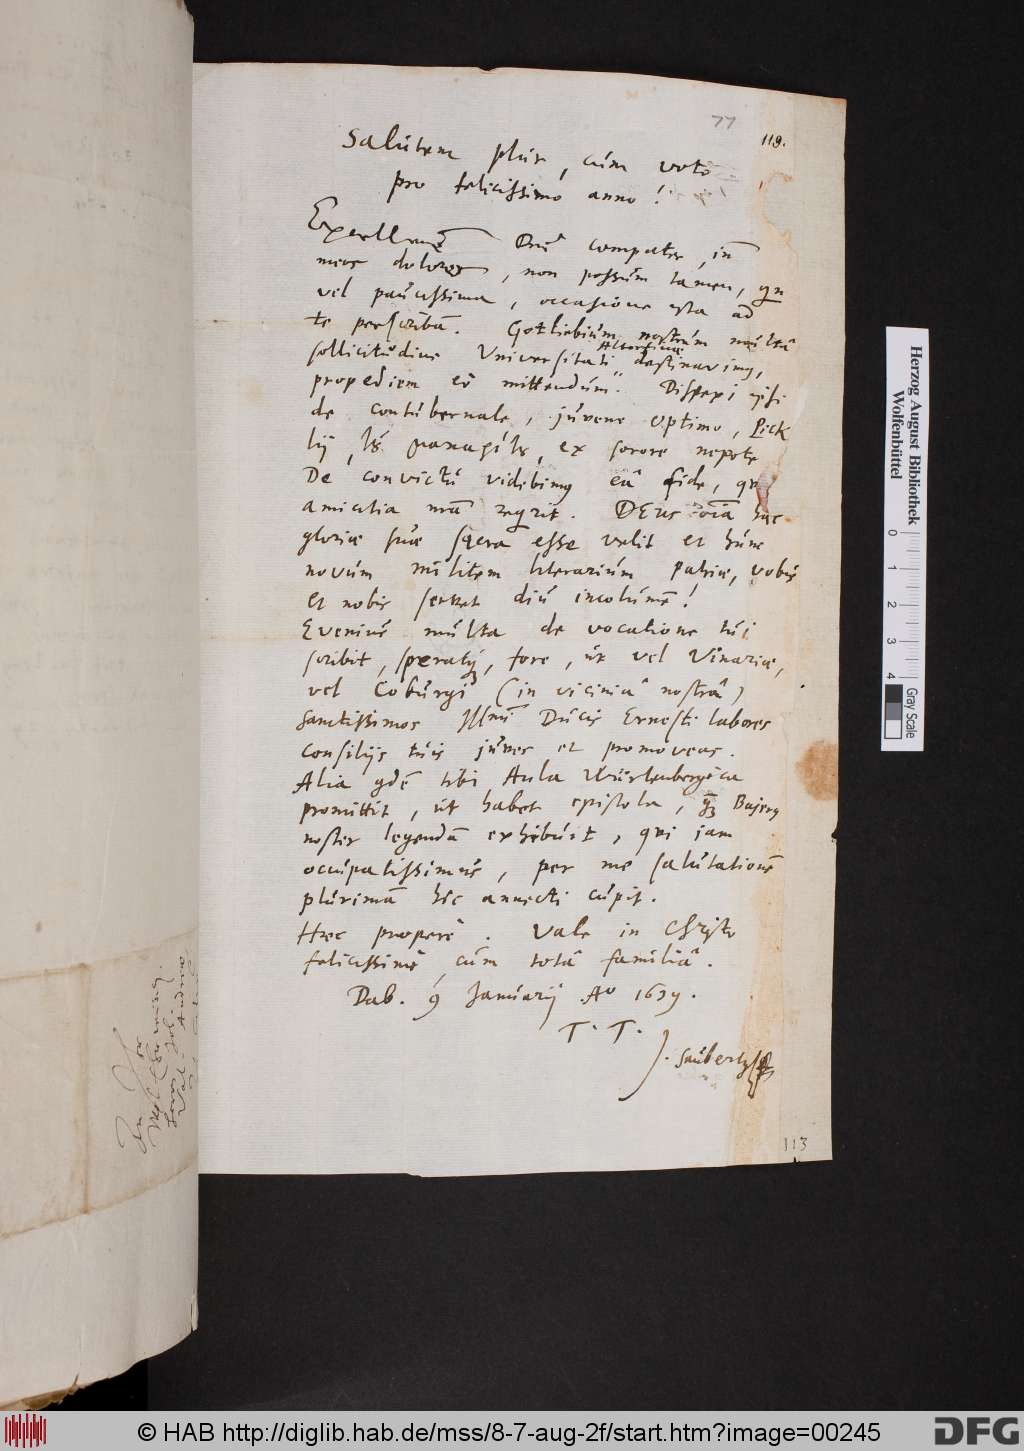 77
119.
Salutem plur, cum voto
pro felicissimo anno!
Excellme Dne compater, in
meis dolores, non possum tamen, qn
vel paucissima, occasione ista ad
te perscribã. Gotliebium nostrum multâ
sollicitudine Universitati Altorfinæ destinavimus,
propediem eò mittendum. Dispexi ipsi
de contubernale, juvene optimo,
ex sorore nepote
De convictu videbimus eâ fide, qu
amicitia nrã reqrit. DEus oîa hæc
gloriæ suæ sacra esse velit et hunc
novum militem literarium patriæ, vobis
et nobis servet diu incolumẽ!
Evenius multa de vocatione tui
scribit, speratq, fore, ut vel Vinariæ,
vel Coburgi (in viciniâ nostrâ)
sanctissimos Illmi Ducis Ernesti labores
consilijs tuis juves et promoveas.
Alia qdẽ tibi Aula Würtenbergica
promittit, ut habet epistola, Bajerg
noster legendã exhibuit, qui iam
occupatissimus, per me salutationẽ
plurimã hîc annecti cupit.
Hæc properè. Vale in Christo
felicissimè cum totâ familiâ.
Dab. 9 Januarij Ao 1639.
T. T.
J. Saubertg
113
Herzog August Bibliothek
Wolfenbüttel
0 1 2 3 4
Gray Scale
© HAB http://diglib.hab.de/mss/8-7-aug-2f/start.htm?image=00245
DFG